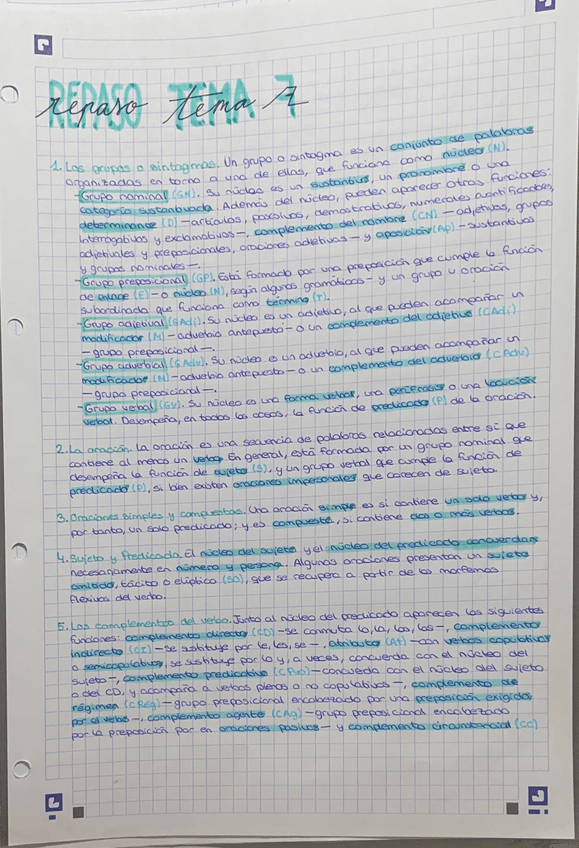 REPASO TEMA 7
repaso tema 7
1. Los grupos o sintagmas. Un grupo o sintagma es un conjunto de palabras
organizadas en torno a una de ellas, que funciona como núcleo (N).
-Grupo nominal (GN). Su núcleo es un sustantivo, un pronombre o una
categoría sustantivada. Además del núcleo, pueden aparecer otras funciones:
determinante (D) -artículos, posesivos, demostrativos, numerales, cuantificadores,
interrogativos y exclamativos-, complemento del nombre (CN) -adjetivos, grupos
adjetivales y preposicionales, oraciones adjetivas- y aposición (Ap) -sustantivos
y grupos nominales-
-Grupo preposicional (GP). Está formado por una preposición que cumple la función
de enlace (E) -o núcleo (N), según algunos gramáticos- y un grupo u oración
subordinada que funciona como término (T).
-Grupo adjetival (GAdj). Su núcleo es un adjetivo, al que pueden acompañar un
modificador (M) -adverbio antepuesto- o un complemento del adjetivo (CAdj)
-grupo preposicional-.
-Grupo adverbial (GAdv). Su núcleo es un adverbio, al que pueden acompañar un
modificador (M) -adverbio antepuesto- o un complemento del adverbio (CAdv)
-grupo preposicional-.
-Grupo verbal (GV). Su núcleo es una forma verbal, una perífrasis o una locución
verbal. Desempeña, en todos los casos, la función de predicado (P) de la oración.
2. La oración. La oración es una secuencia de palabras relacionadas entre sí que
contiene al menos un verbo. En general, está formada por un grupo nominal que
desempeña la función de sujeto (S), y un grupo verbal que cumple la función de
predicado (P), si bien existen oraciones impersonales que carecen de sujeto.
3. Oraciones simples y compuestas. Una oración simple es si contiene un solo verbo y,
por tanto, un solo predicado; y es compuesta, si contiene dos o más verbos.
4. Sujeto y Predicado. El núcleo del sujeto y el núcleo del predicado concuerdan
necesariamente en número y persona. Algunas oraciones presentan un sujeto
omitido, tácito o elíptico (SO), que se recupera a partir de los morfemas
flexivos del verbo.
5. Los complementos del verbo. Junto al núcleo del predicado aparecen las siguientes
funciones: complemento directo (CD) -se conmuta lo, la, los, las-, complemento
indirecto (CI) -se sustituye por le, les, se-, atributo (At) -con verbos copulativos
o semicopulativos, se sustituye por lo y, a veces, concuerda con el núcleo del
sujeto-, complemento predicativo (CPvo) -concuerda con el núcleo del sujeto
o del CD, y acompaña a verbos plenos o no copulativos-, complemento de
régimen (CReg) -grupo preposicional encabezado por una preposición exigida
por el verbo-, complemento agente (CAg) -grupo preposicional encabezado
por la preposición por en oraciones pasivas- y complemento circunstancial (CC)